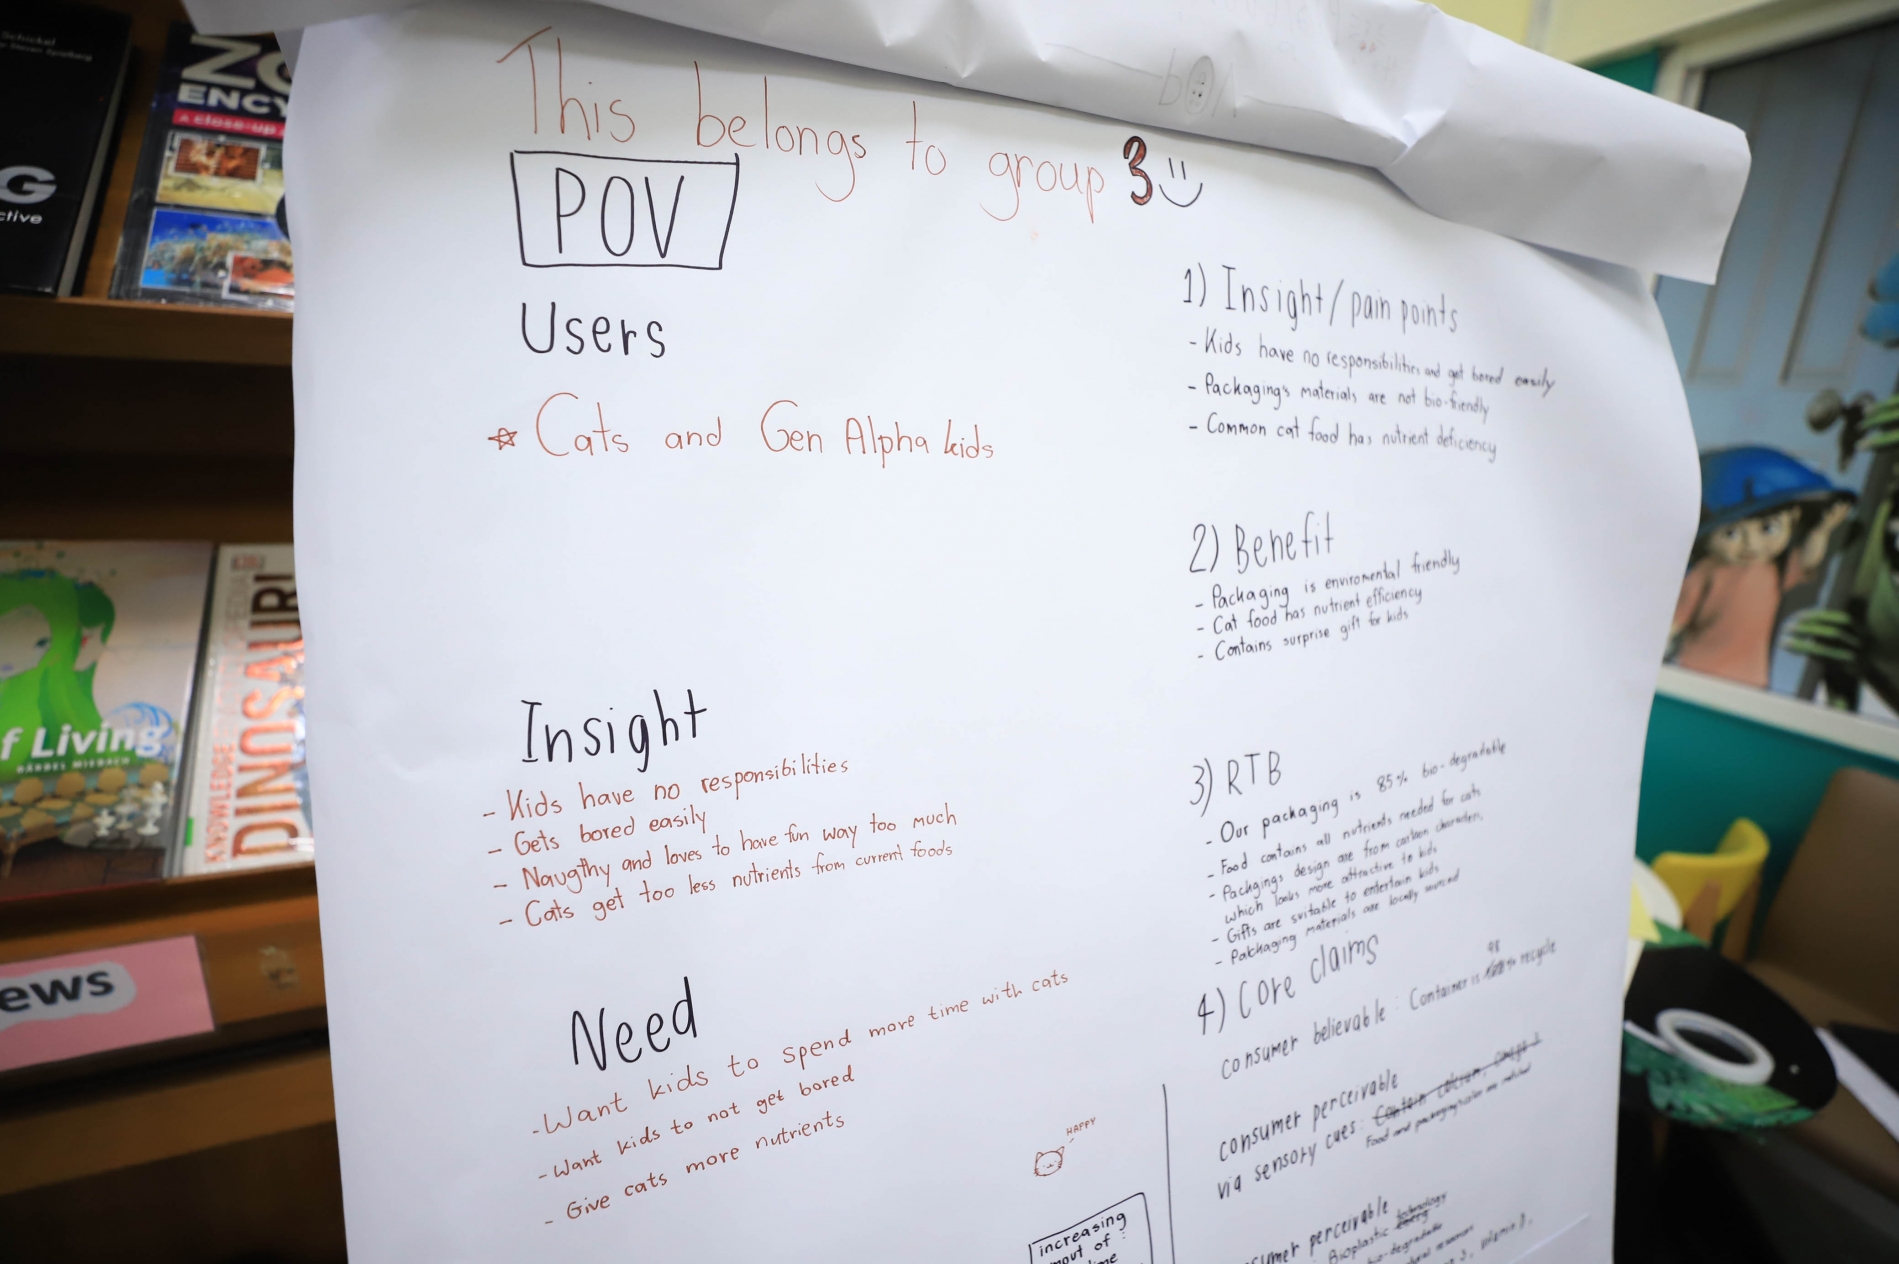 This belongs to group 3
POV
Users
Cats and Gen Alpha kids
Insight
- Kids have no responsibilities
- Gets bored easily
- Naugthy and loves to have fun way too much
- Cats get too less nutrients from current foods
Need
- Want kids to spend more time with cats
- Want kids to not get bored
- Give cats more nutrients
HAPPY
increasing
of
1) Insight/pain points
- Kids have no responsibilities and get bored easily
- Packaging's materials are not bio-friendly
- Common cat food has nutrient deficiency
2) Benefit
- Packaging is enviromental friendly
- Cat food has nutrient efficiency
- Contains surprise gift for kids
3) RTB
- Our packaging is 85% bio-degradable
- Food contains all nutrients needed for cats
- Packgings design are from cartoon characters,
which looks more attractive to kids
- Gifts are suitable to entertain kids
- Pakchaging materials are locally sourced
4) Core claims
98
consumer believable : Container is recycle
consumer perceivable
via sensory cues: Contain calcium, Omega 3
Food and packaging color are matched
perceivable
technology
Bioplastic
bio-degradable
ZO
ENCY
A close-up
G
ctive
Schickel
Steven Spielberg
f Living
BÄRBEL MIEBACH
DK
KNOWLEDGE
PEDIA
DINOSAUR!
ews